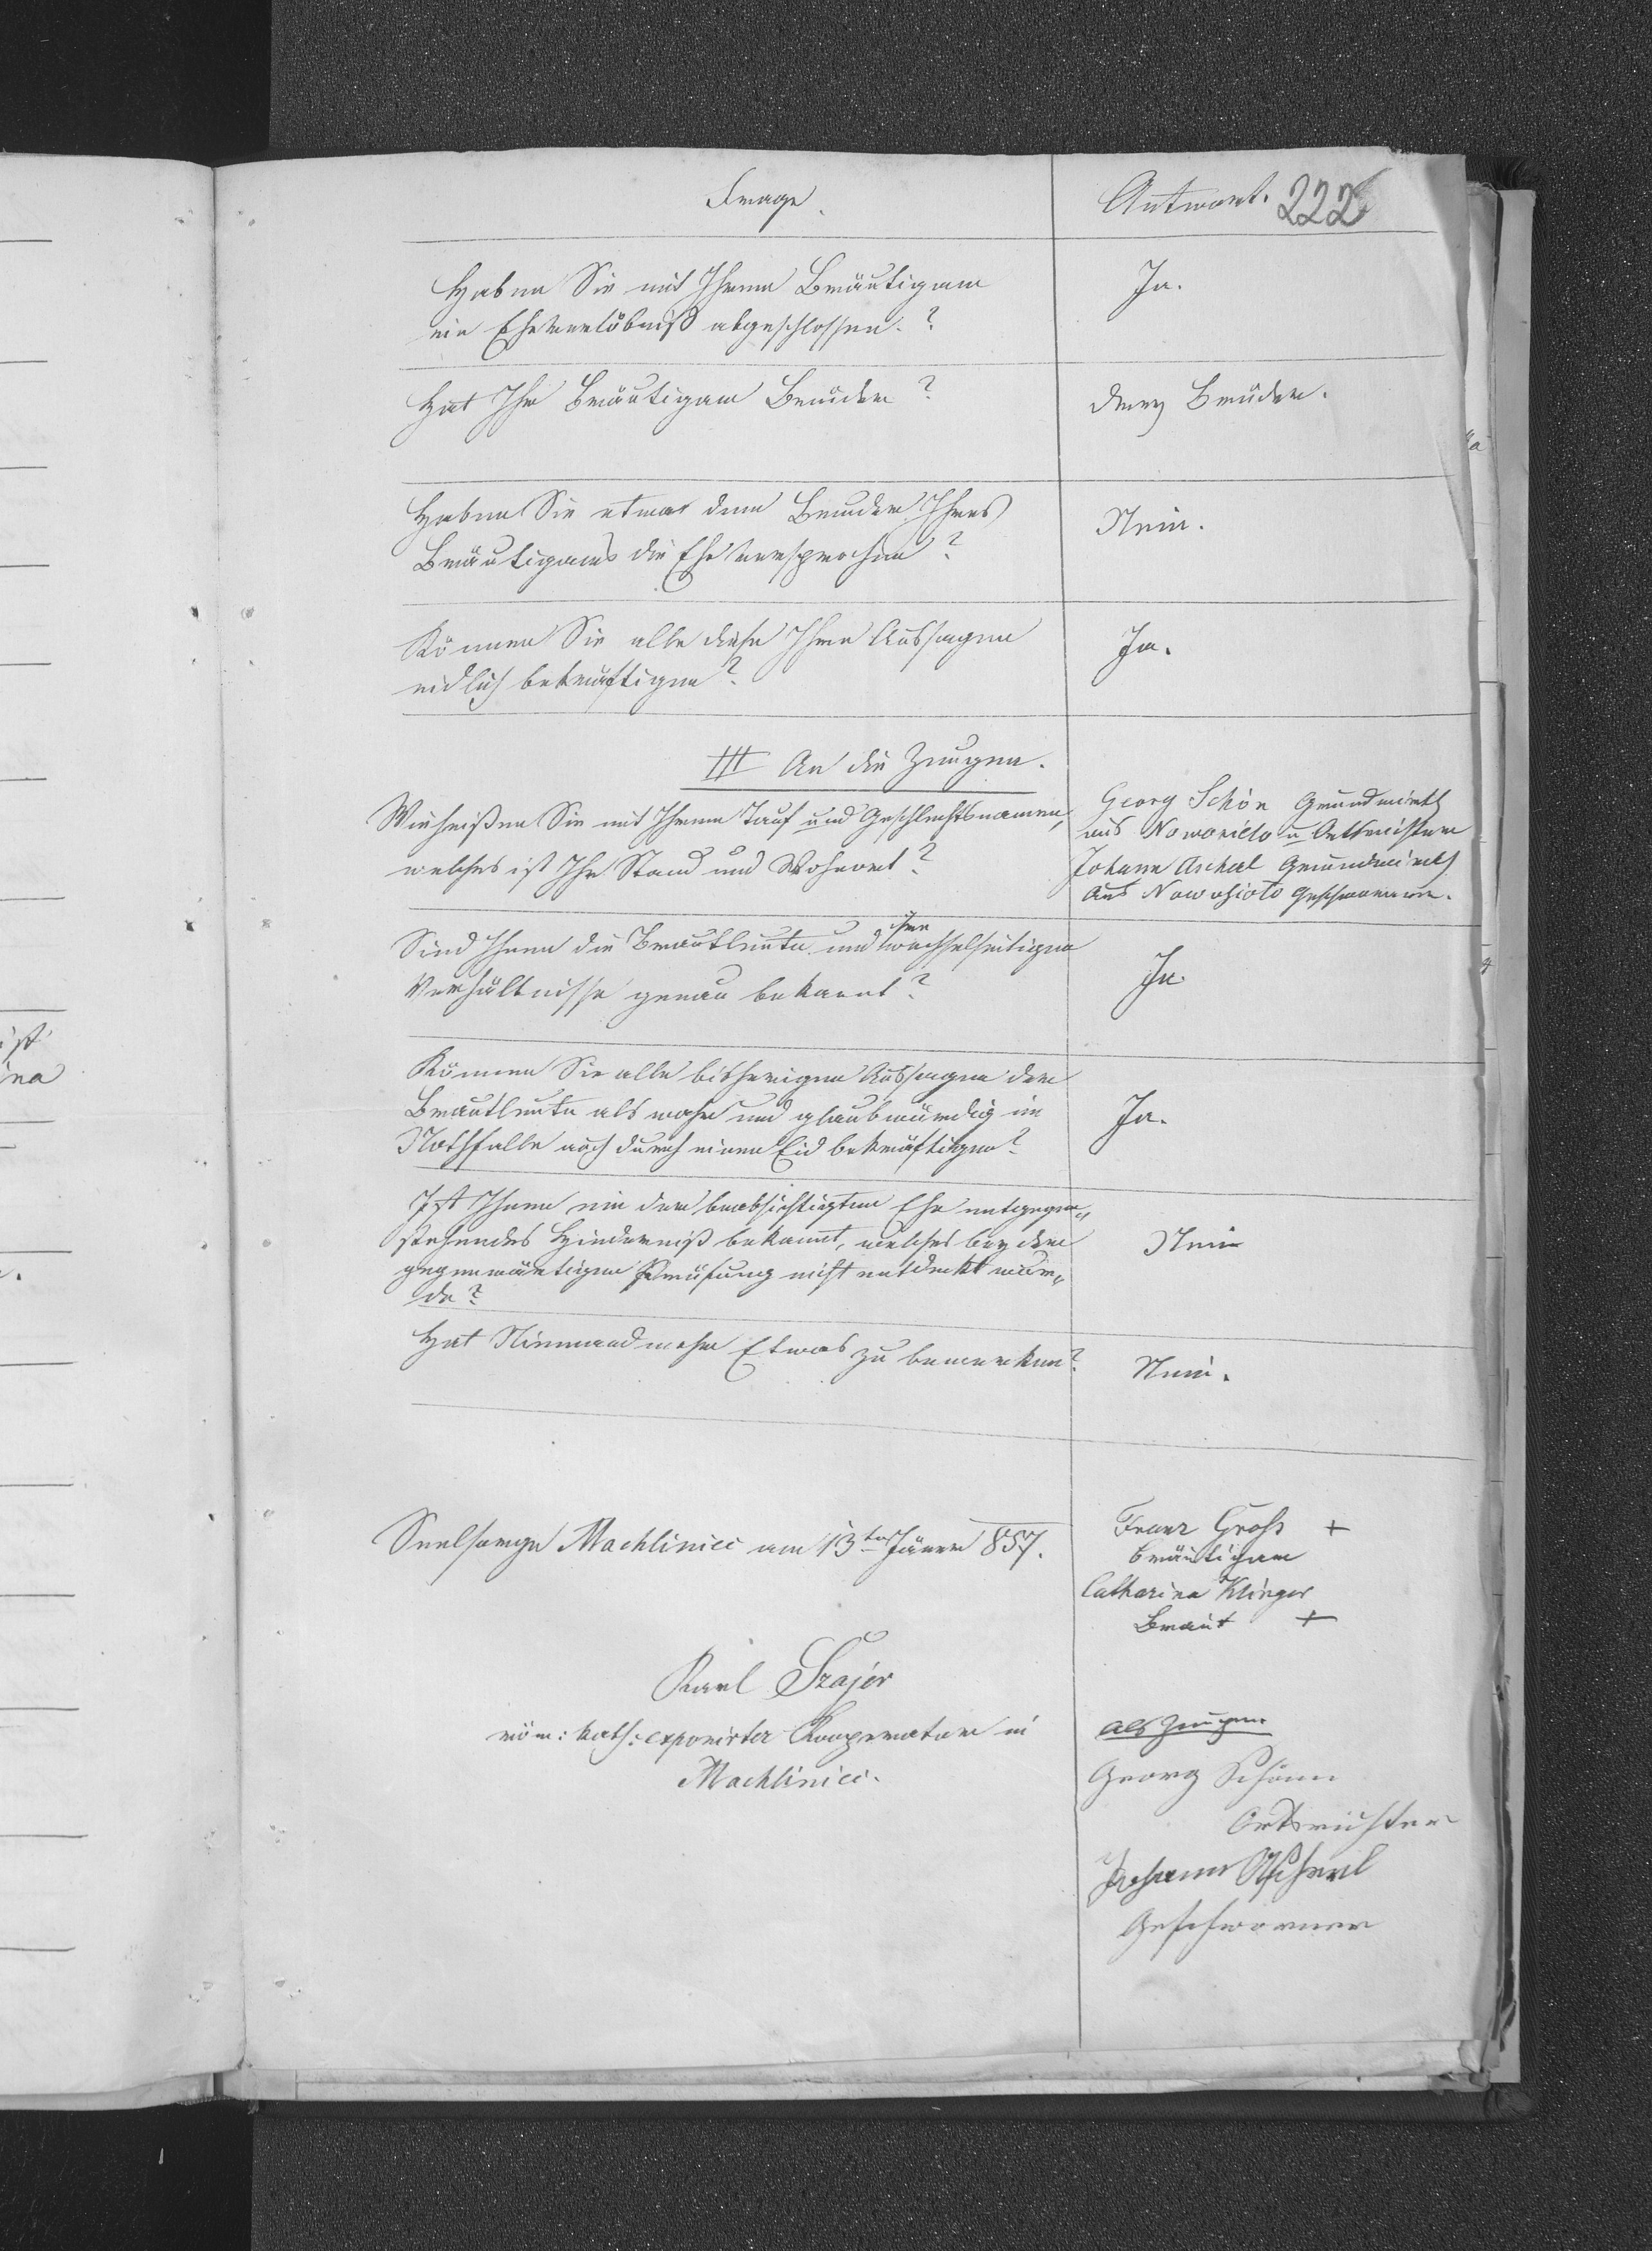 Frage.
Antwort. 222
Haben Sie mit Ihrem Bräutigam
ein Eheverlöbniß abgeschlossen?
Ja.
Hat Ihr Bräutigam Brüder?
Drey Brüder.
Haben Sie etwas dem Bruder Ihres
Bräutigams die Ehe versprochen?
Nein.
Können Sie alle diese Ihre Aussagen
eidlich bekräftigen?
Ja.
III An die Zeugen.
Wie heißen Sie mit Ihrem Tauf und Geschlechtsnamen,
welches ist Ihr Stand und Wohnort?
Georg Schön Grundwirth
aus Nowosielo u Ortsrichter
Johann Ascheel Grundwirth
aus Nowosioto Geschworener.
Sind Ihnen die Brautleute und ihre wechselseitigen
Verhältnisse genau bekannt?
Ja
Können Sie alle bisherigen Aussagen der
Brautleute als wahr und glaubwürdig im
Nothfalle auch durch einen Eid bekräftigen?
Ja.
Ist Ihnen ein der beabsichtigten Ehe entgegen„
stehendes Hinderniß bekannt, welches bey der
gegenwärtigen Prüfung nicht entdeckt wür„
de?
Nein
Hat Niemand mehr Etwas zu bemerken?
Nein.
Seelsorge Machlinice am 13ten Jäner 857.
Franz Groß +
Bräutigam
Catharina Klinger
Braut +
Karl Szajer
röm: kath: exponirter Kooperator in
Machlinice.
als Zeugen
Georg Schönn
Ortsrichter
Johann Ascheril
Geschworner
ist
ina